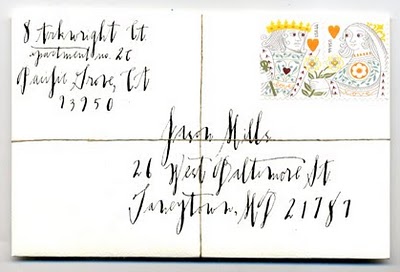 8 Arkwright Ct
apartment no. 2C
Pacific Grove, CA
93950
Jason Mills
26 West Baltimore St
Taneytown, MD 21787